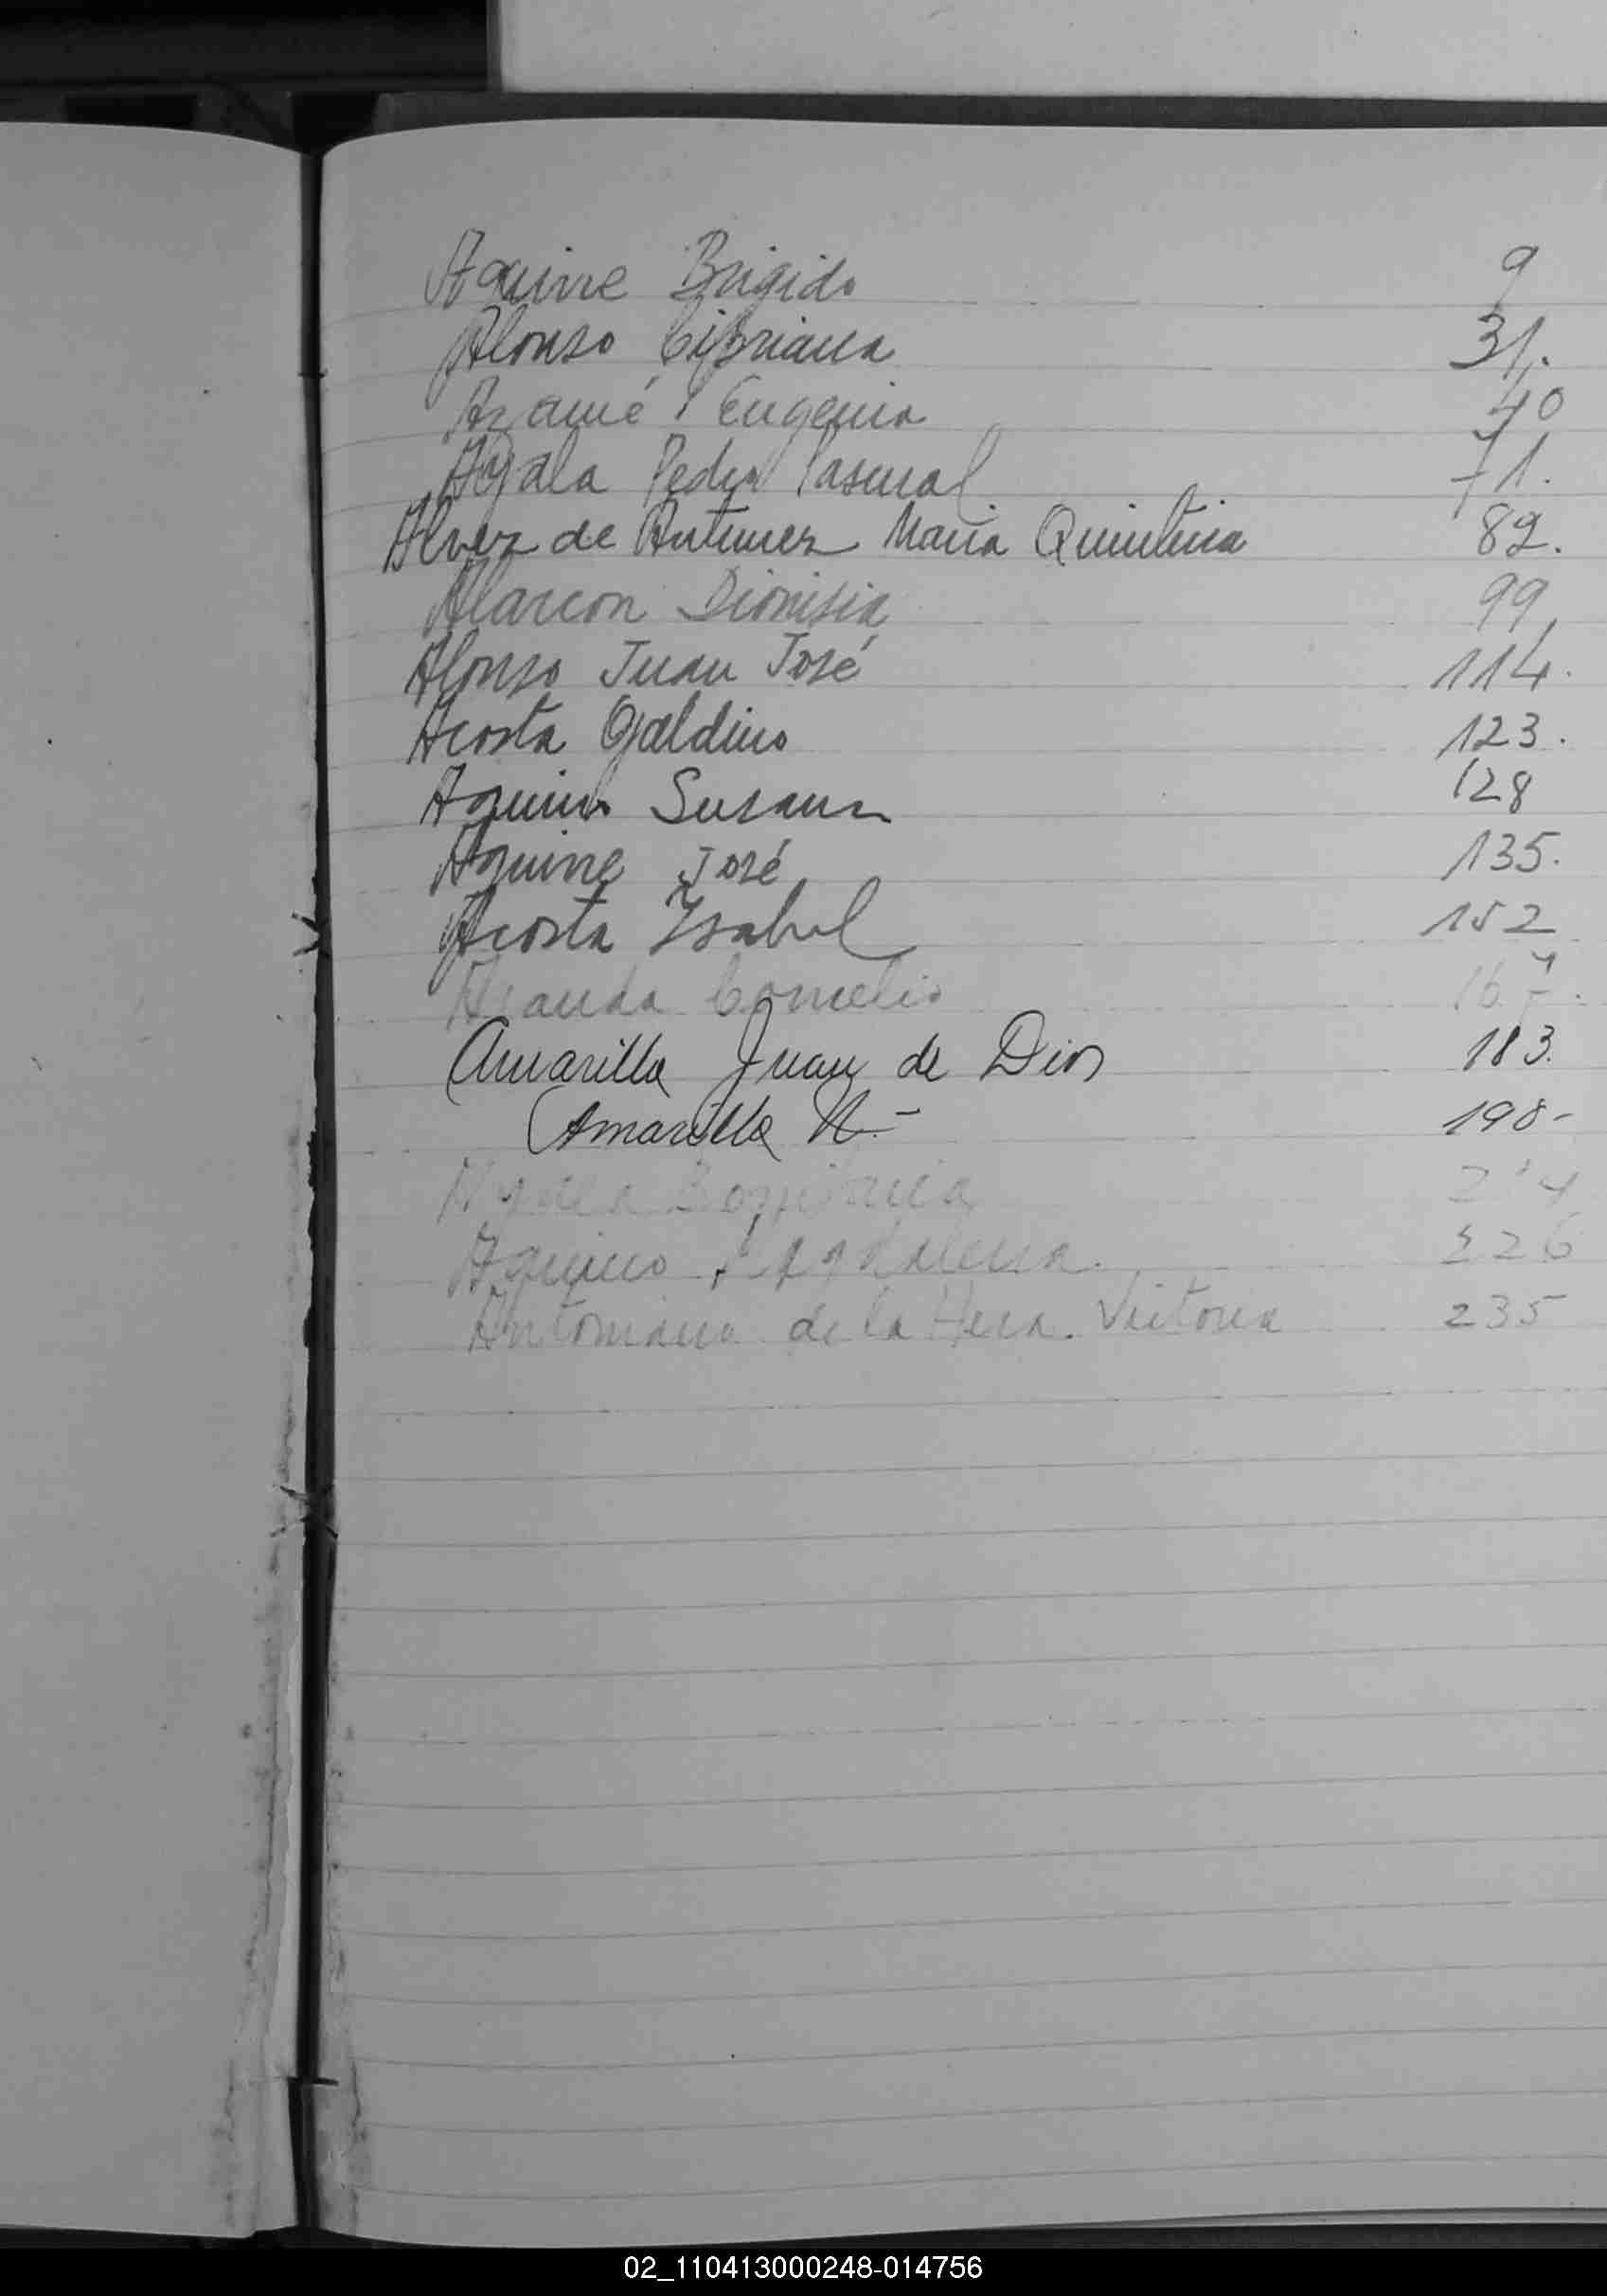 Aguirre Brigido 9
Alonso Cipriana 31.
Azamé Eugenia 40
Ayala Pedro Pascual 71.
Alvez de Antunez Maria Quintina 82.
Alarcon Dionisia 99
Alonso Juan José 114.
Acosta Galdino 123.
Aquino Susana 128
Aguirre José 135.
Acosta Ysabel 152
Aranda Cornelio 167.
Amarilla Juan de Dios 183.
Amarilla N.- 198-
Bonifacia
Aquino Magdalena. 226
Antoniana de la Hera. Victoria 235
02_110413000248-014756